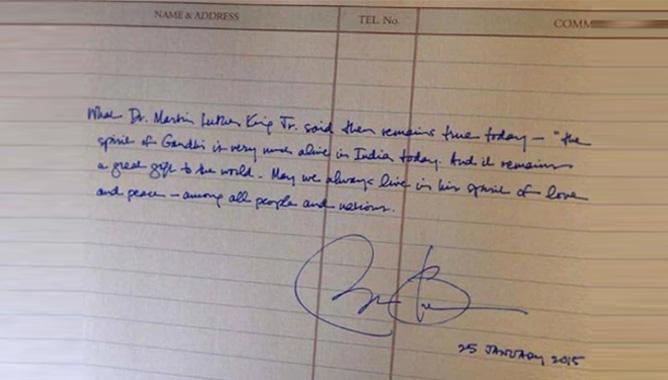 NAME & ADDRESS TEL. No. COMM
What Dr. Martin Luther King Jr. said then remains true today – "the
spirit of Gandhi is very much alive in India today. And it remains
a great gift to the world. May we always live in his spirit of love
and peace – among all people and nations.
25 JANUARY 2015